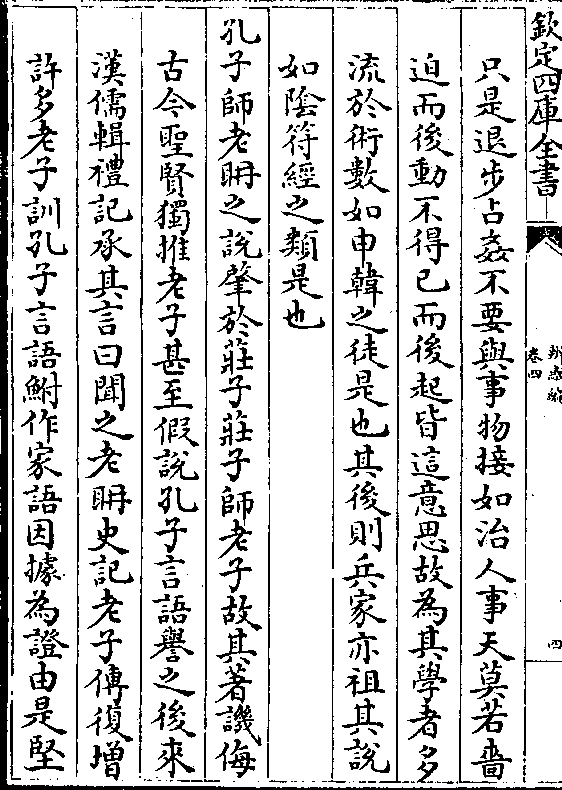 欽定四庫全書
辨惑編
卷四
四
只是退步占姦不要與事物接如治人事天莫若嗇
迫而後動不得已而後起皆這意思故為其學者多
流於術數如申韓之徒是也其後則兵家亦祖其說
如陰符經之類是也
孔子師老耼之說肇於莊子莊子師老子故其著譏侮
古今聖賢獨推老子甚至假說孔子言語譽之後來
漢儒輯禮記承其言曰聞之老耼史記老子傳復增
許多老子訓孔子言語鮒作家語因據為證由是堅